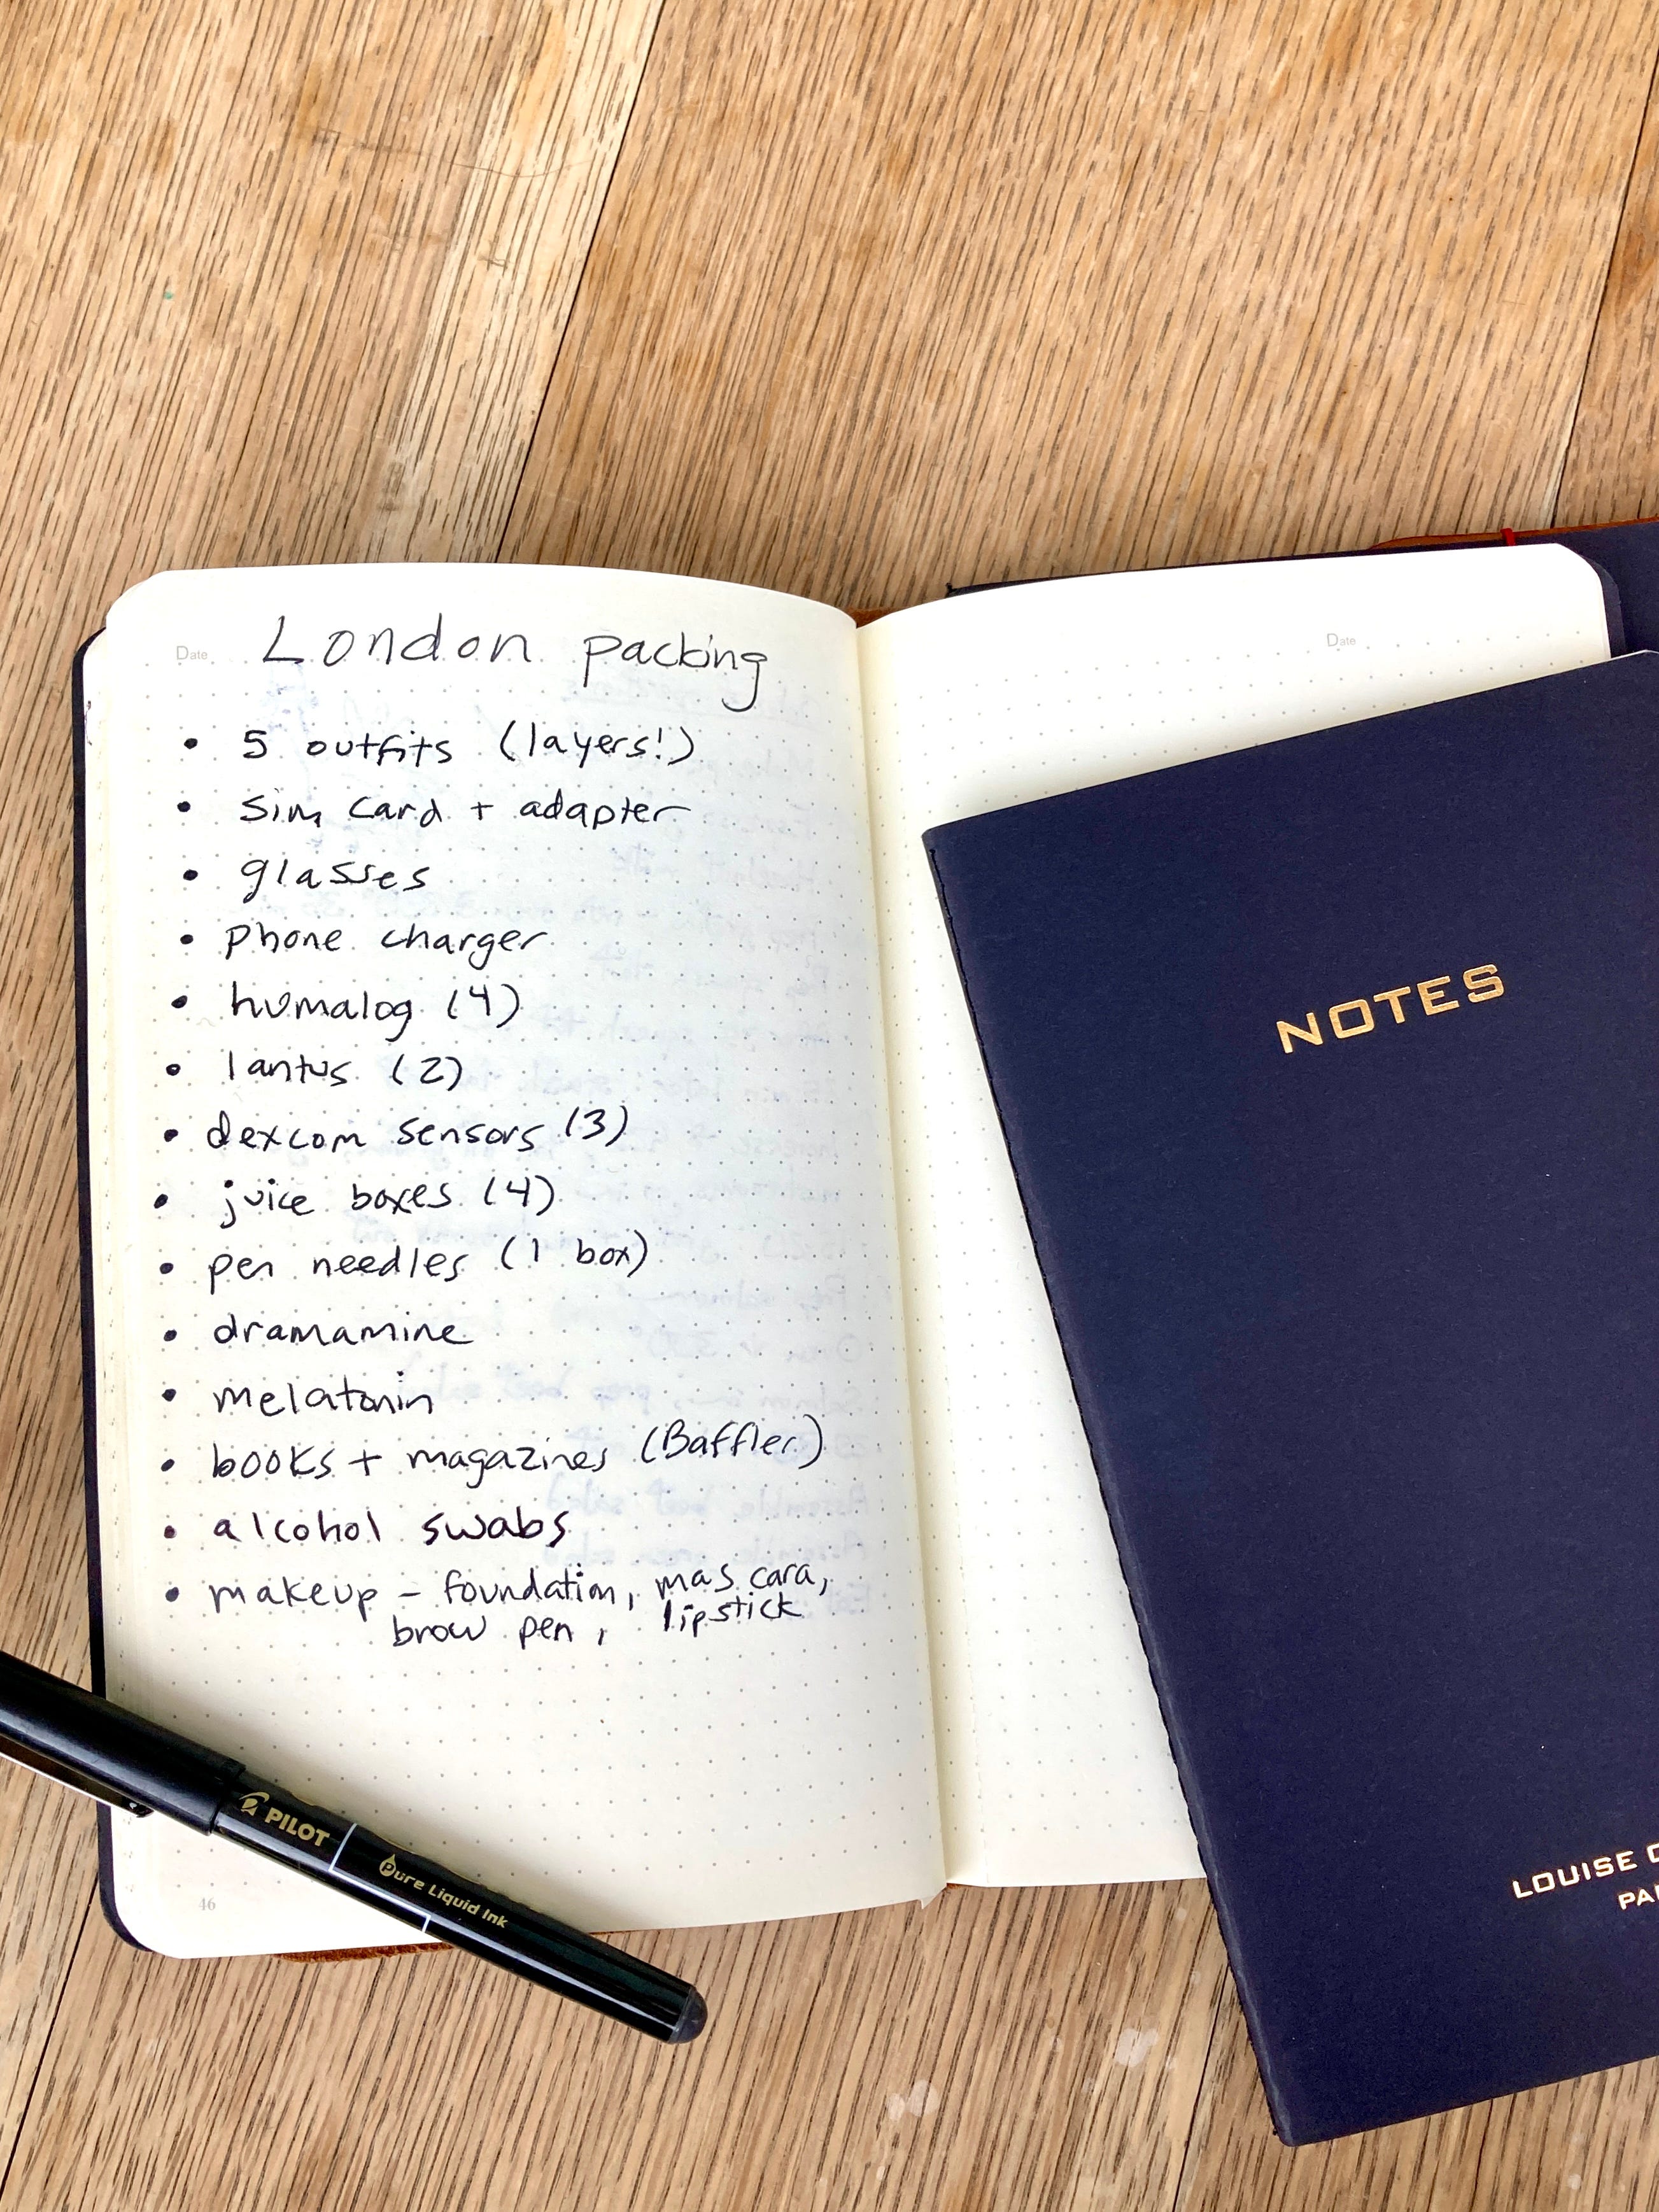 Date
London packing
• 5 outfits (layers!)
• Sim card + adapter
• glasses
• phone charger
• humalog (4)
• lantus (2)
• dexcom sensors (3)
• juice boxes (4)
• pen needles (1 box)
• dramamine
• melatonin
• books + magazines (Baffler)
• alcohol swabs
• makeup – foundation, mascara,
brow pen, lipstick
46
PILOT
Pure Liquid Ink
Date
NOTES
LOUISE